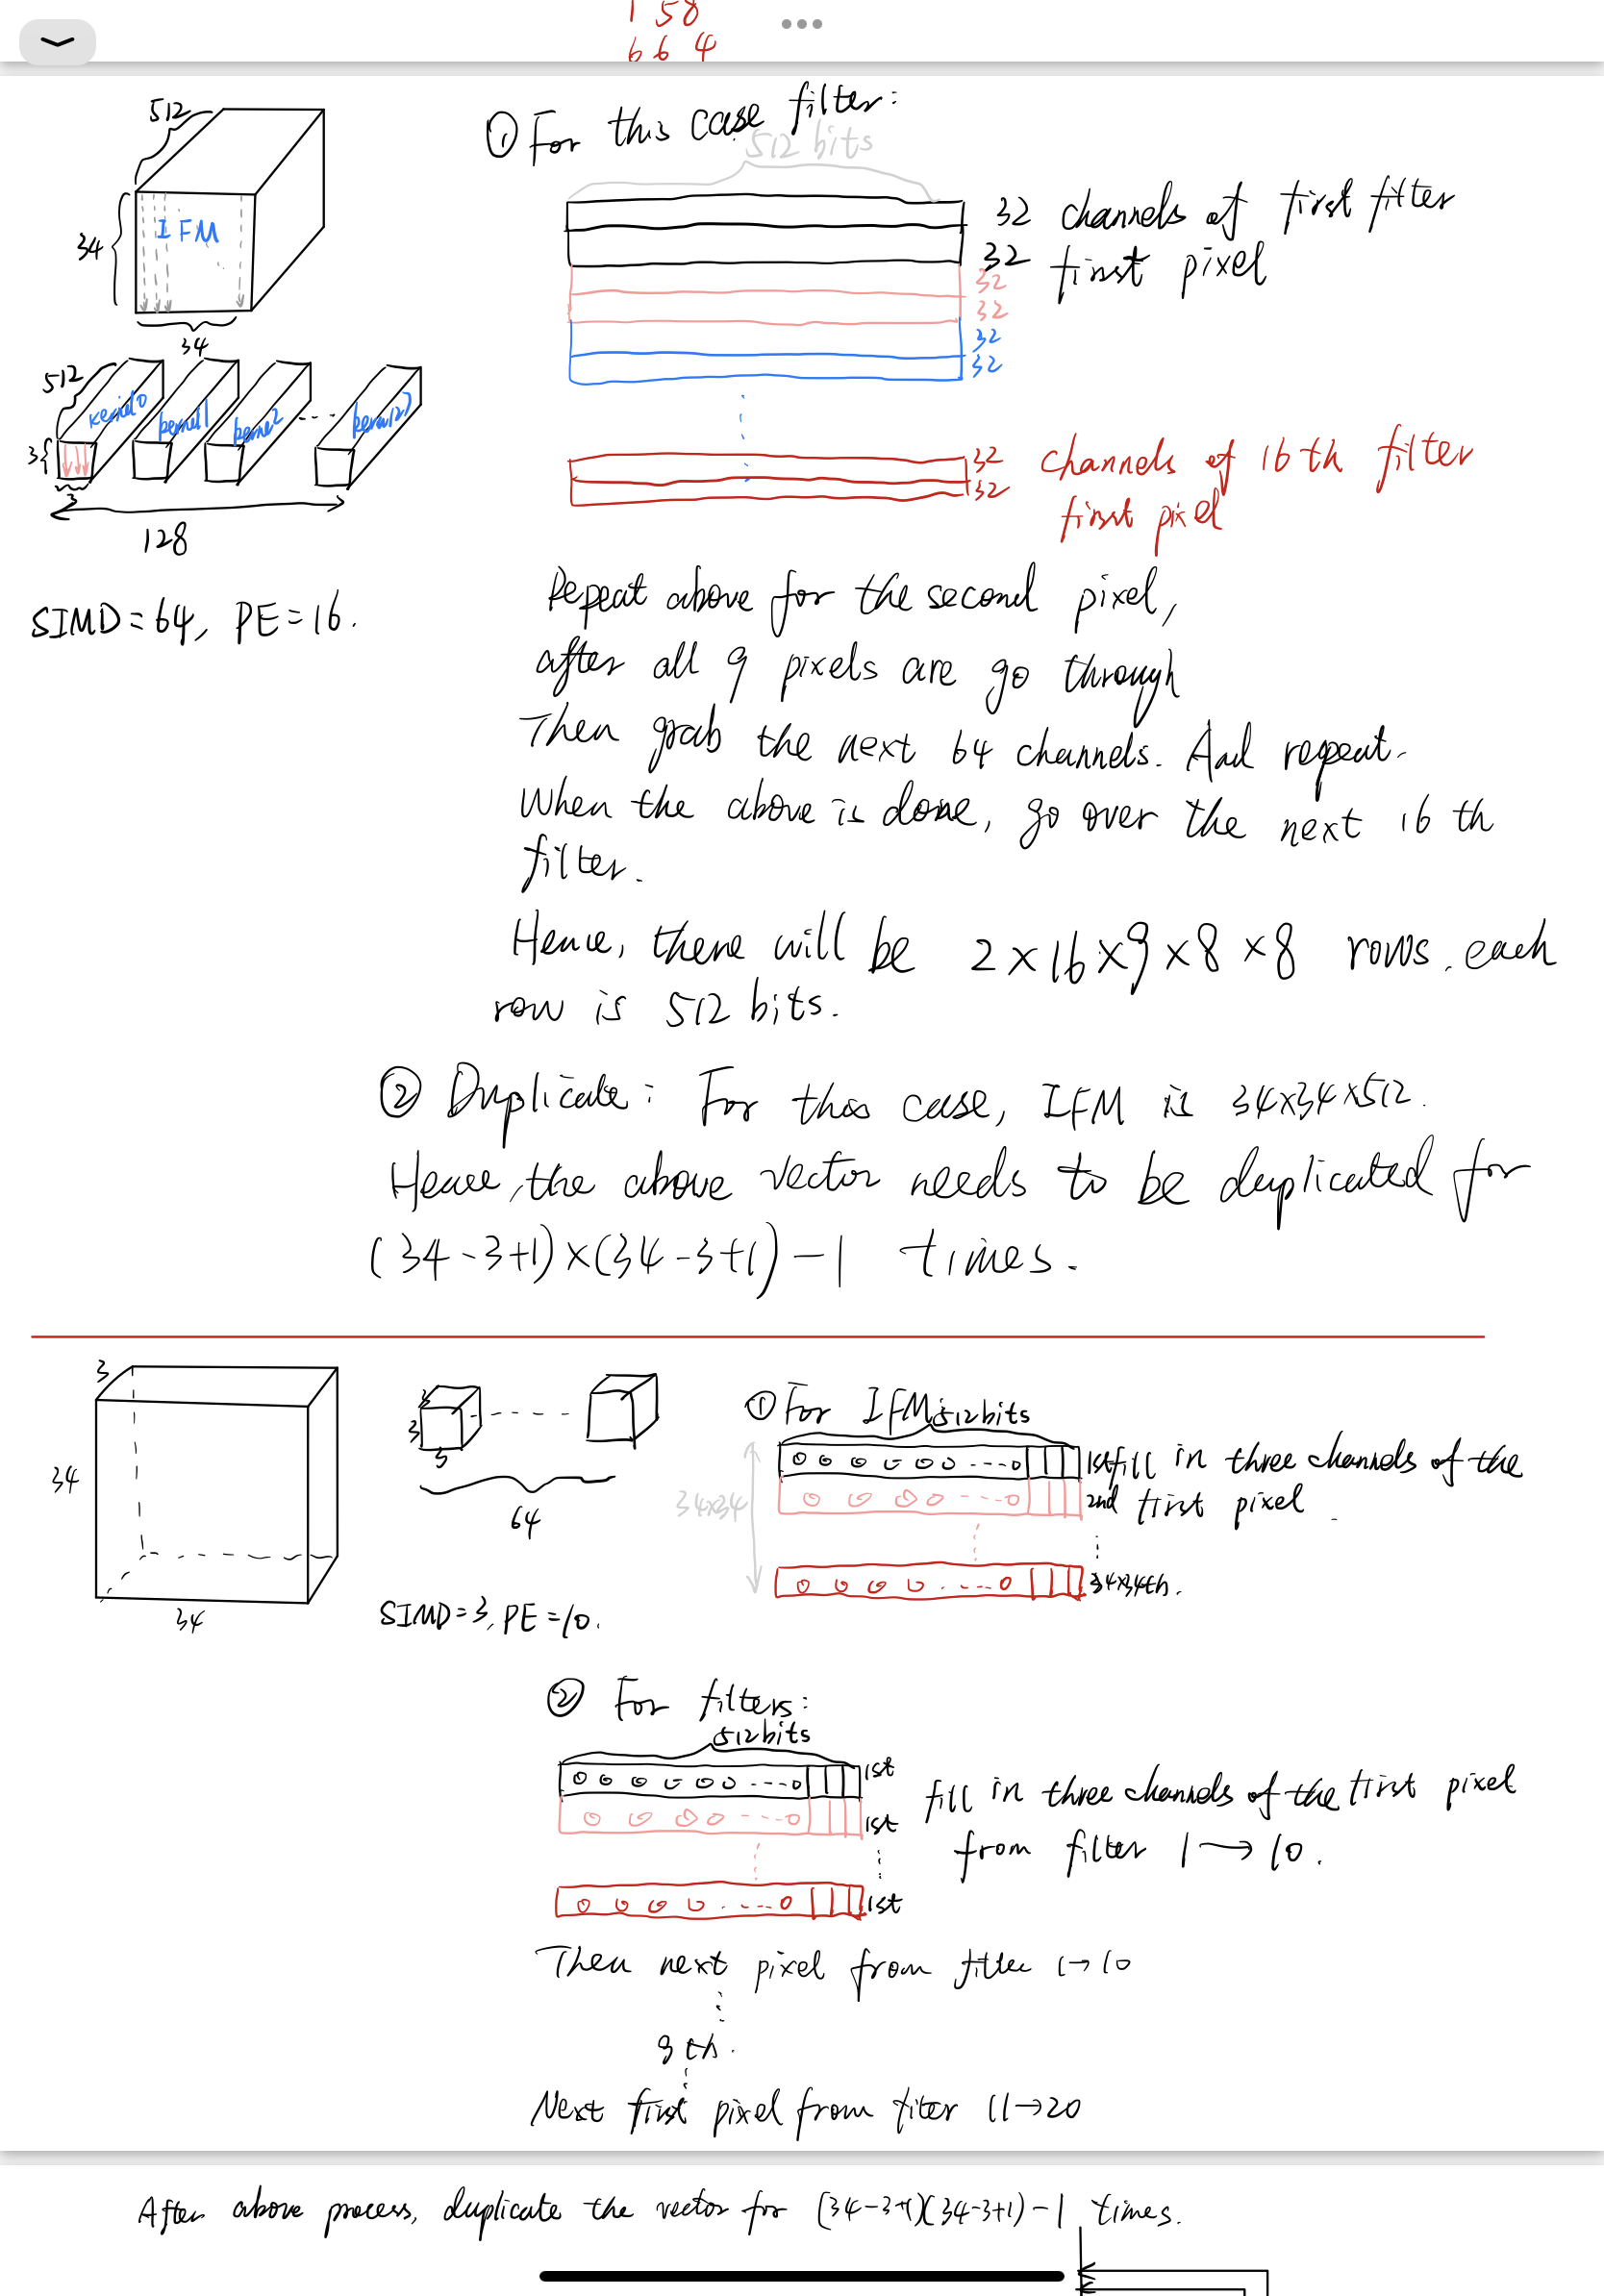 1 5 8
6 6 4
512
IFM
34
34
512
kernel0
kernel1
kernel2
kernel127
3
3
128
SIMD=64, PE=16.
① For this case filter:
512 bits
32 channels of first filter
32 first pixel
32
32
32
32
32 channels of 16 th filter
32 first pixel
Repeat above for the second pixel,
after all 9 pixels are go through
Then grab the next 64 channels. And repeat.
When the above is done, go over the next 16 th
filter.
Hence, there will be 2×16×9×8×8 rows. each
row is 512 bits.
② Duplicate: For this case, IFM is 34×34×512.
Hence, the above vector needs to be duplicated for
(34-3+1)×(34-3+1)-1 times.
3
34
34
3
3
3
64
SIMD=3, PE=10.
① For IFM:
512bits
34×34
0 0 0 0 0 ----0 1st fill in three channels of the
0 0 0 0 ---0 2nd first pixel
0 0 0 0 ----0 34×34th.
② For filters:
512bits
0 0 0 0 0 0 ---0 1st
0 0 0 0 ---0 1st
0 0 0 0 ----0 1st
fill in three channels of the first pixel
from filter 1→10.
Then next pixel from filter 1→10
9 th.
Next first pixel from fiter 11→20
After above process, duplicate the vector for (34-3+1)(34-3+1)-1 times.